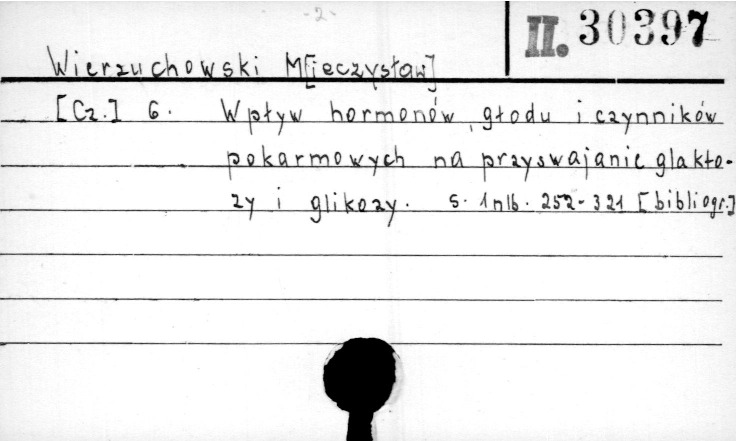 -2-
II. 30397
Wierzuchowski M[ieczysław]
[Cz.] 6. Wpływ hormonów, głodu i czynników
pokarmowych na przyswajanie glakto-
zy i glikozy. s. 1nlb. 252-321 [bibliogr.]